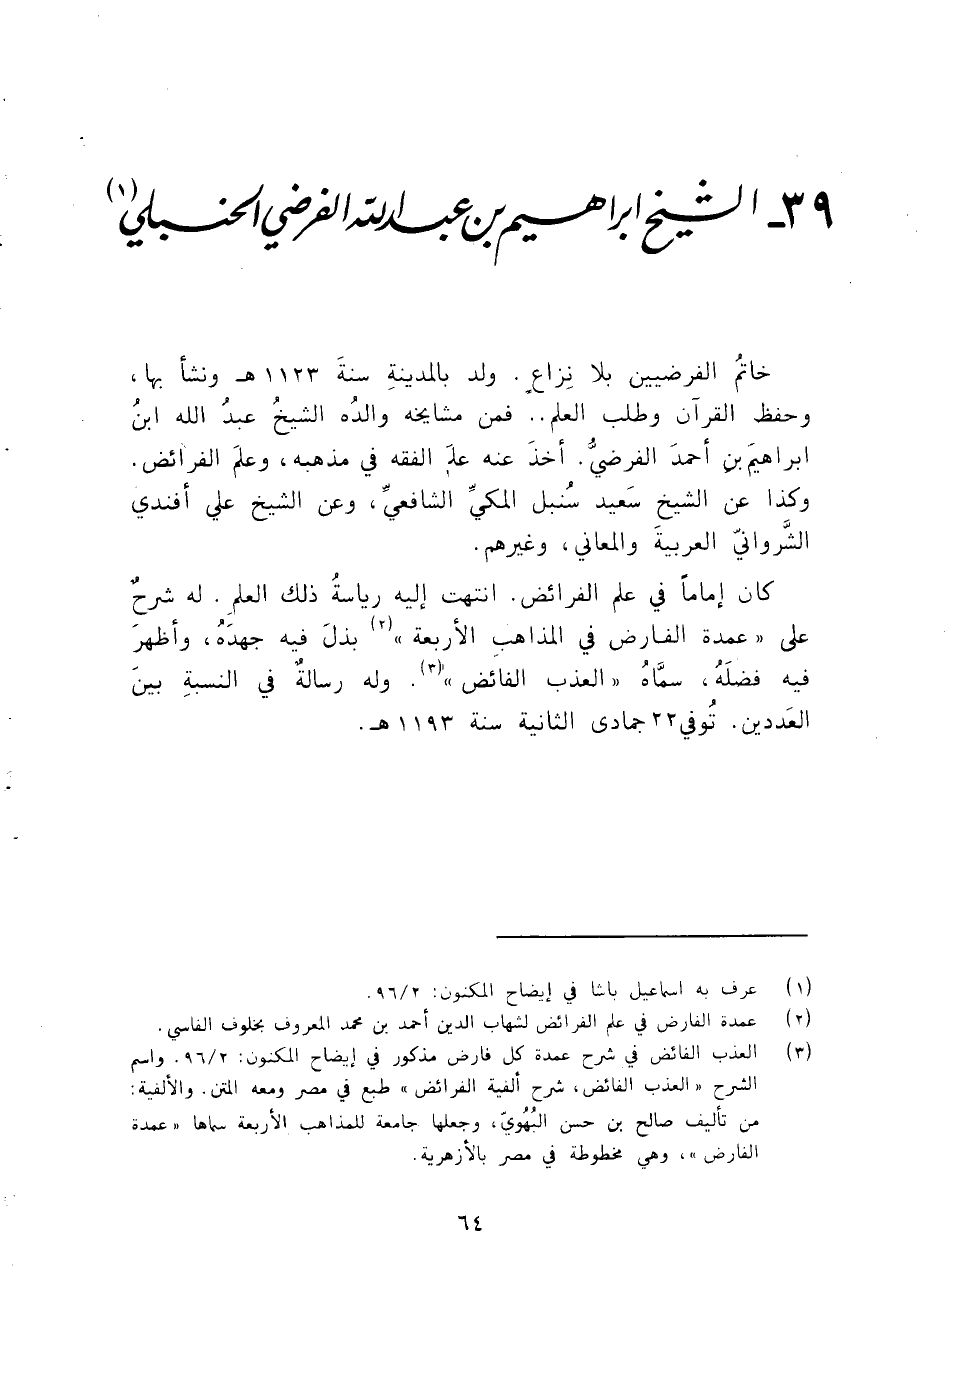 ٣٩ـ الشيخ ابراهيم بن عبد الله الفرضي الحنبلي (١)
خاتمُ الفرضيين بلا نِزاعٍ. ولد بالمدينةِ سنةَ ١١٢٣ هـ ونشأ بها،
وحفظ القرآن وطلب العلم.. فمن مشايخه والدُه الشيخُ عبدُ الله ابنُ
ابراهيمَ بنِ أحمدَ الفرضيُّ. أخذَ عنه علمَ الفقه في مذهبه، وعلمَ الفرائض.
وكذا عن الشيخ سَعيد سُنبل المكيِّ الشافعيِّ، وعن الشيخ علي أفندي
الشَّروانيّ العربيةَ والمعاني، وغيرهم.
كان إماماً في علم الفرائض. انتهت إليه رياسةُ ذلك العلمِ. له شرحٌ
على « عمدة الفارض في المذاهبِ الأربعة »(٢) بذلَ فيه جهدَهُ، وأظهرَ
فيه فضلَهُ، سمَّاهُ « العذب الفائض »(٣). وله رسالةٌ في النسبةِ بينَ
العَددين. تُوفي ٢٢ جمادى الثانية سنة ١١٩٣ هـ.
(١) عرف به اسماعيل باشا في إيضاح المكنون: ٩٦/٢.
(٢) عمدة الفارض في علم الفرائض لشهاب الدين أحمد بن محمد المعروف بخلوف الفاسي.
(٣) العذب الفائض في شرح عمدة كل فارض مذكور في إيضاح المكنون: ٩٦/٢. واسم
الشرح « العذب الفائض، شرح ألفية الفرائض » طبع في مصر ومعه المتن. والألفية:
من تأليف صالح بن حسن البُهُويّ، وجعلها جامعة للمذاهب الأربعة سماها « عمدة
الفارض »، وهي مخطوطة في مصر بالأزهرية.
٦٤